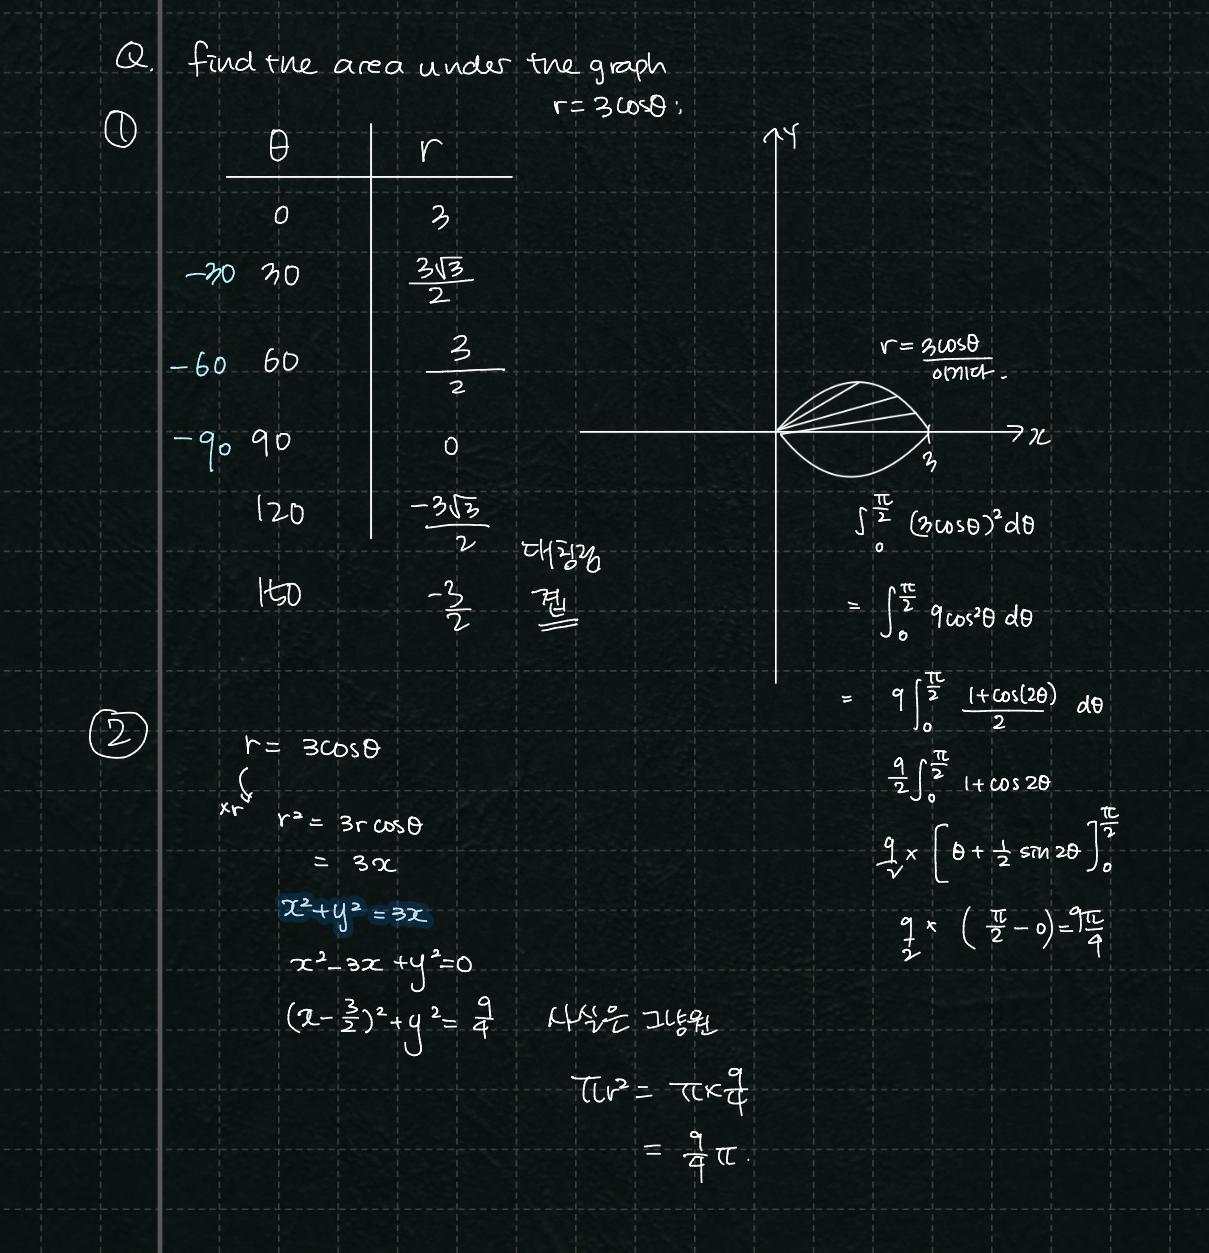 Q. find the area under the graph
r = 3cosθ;
①
θ r
0 3
-30 30 3√3/2
-60 60 3/2
-90 90 0
120 -3√3/2
150 -3/2
대칭랑
겹
Y
r = 3cosθ
이미다.
x
3
∫₀^(π/2) (3cosθ)² dθ
= ∫₀^(π/2) 9cos²θ dθ
= 9∫₀^(π/2) (1+cos(2θ))/2 dθ
9/2 ∫₀^(π/2) 1+cos2θ
9/2 × [θ + 1/2 sin2θ]₀^(π/2)
9/2 × (π/2 - 0) = 9π/4
②
r = 3cosθ
×r
r² = 3rcosθ
= 3x
x²+y² = 3x
x²-3x+y²=0
(x-3/2)²+y² = 9/4
사실은 그냥 원
πr² = π×9/4
= 9/4 π.